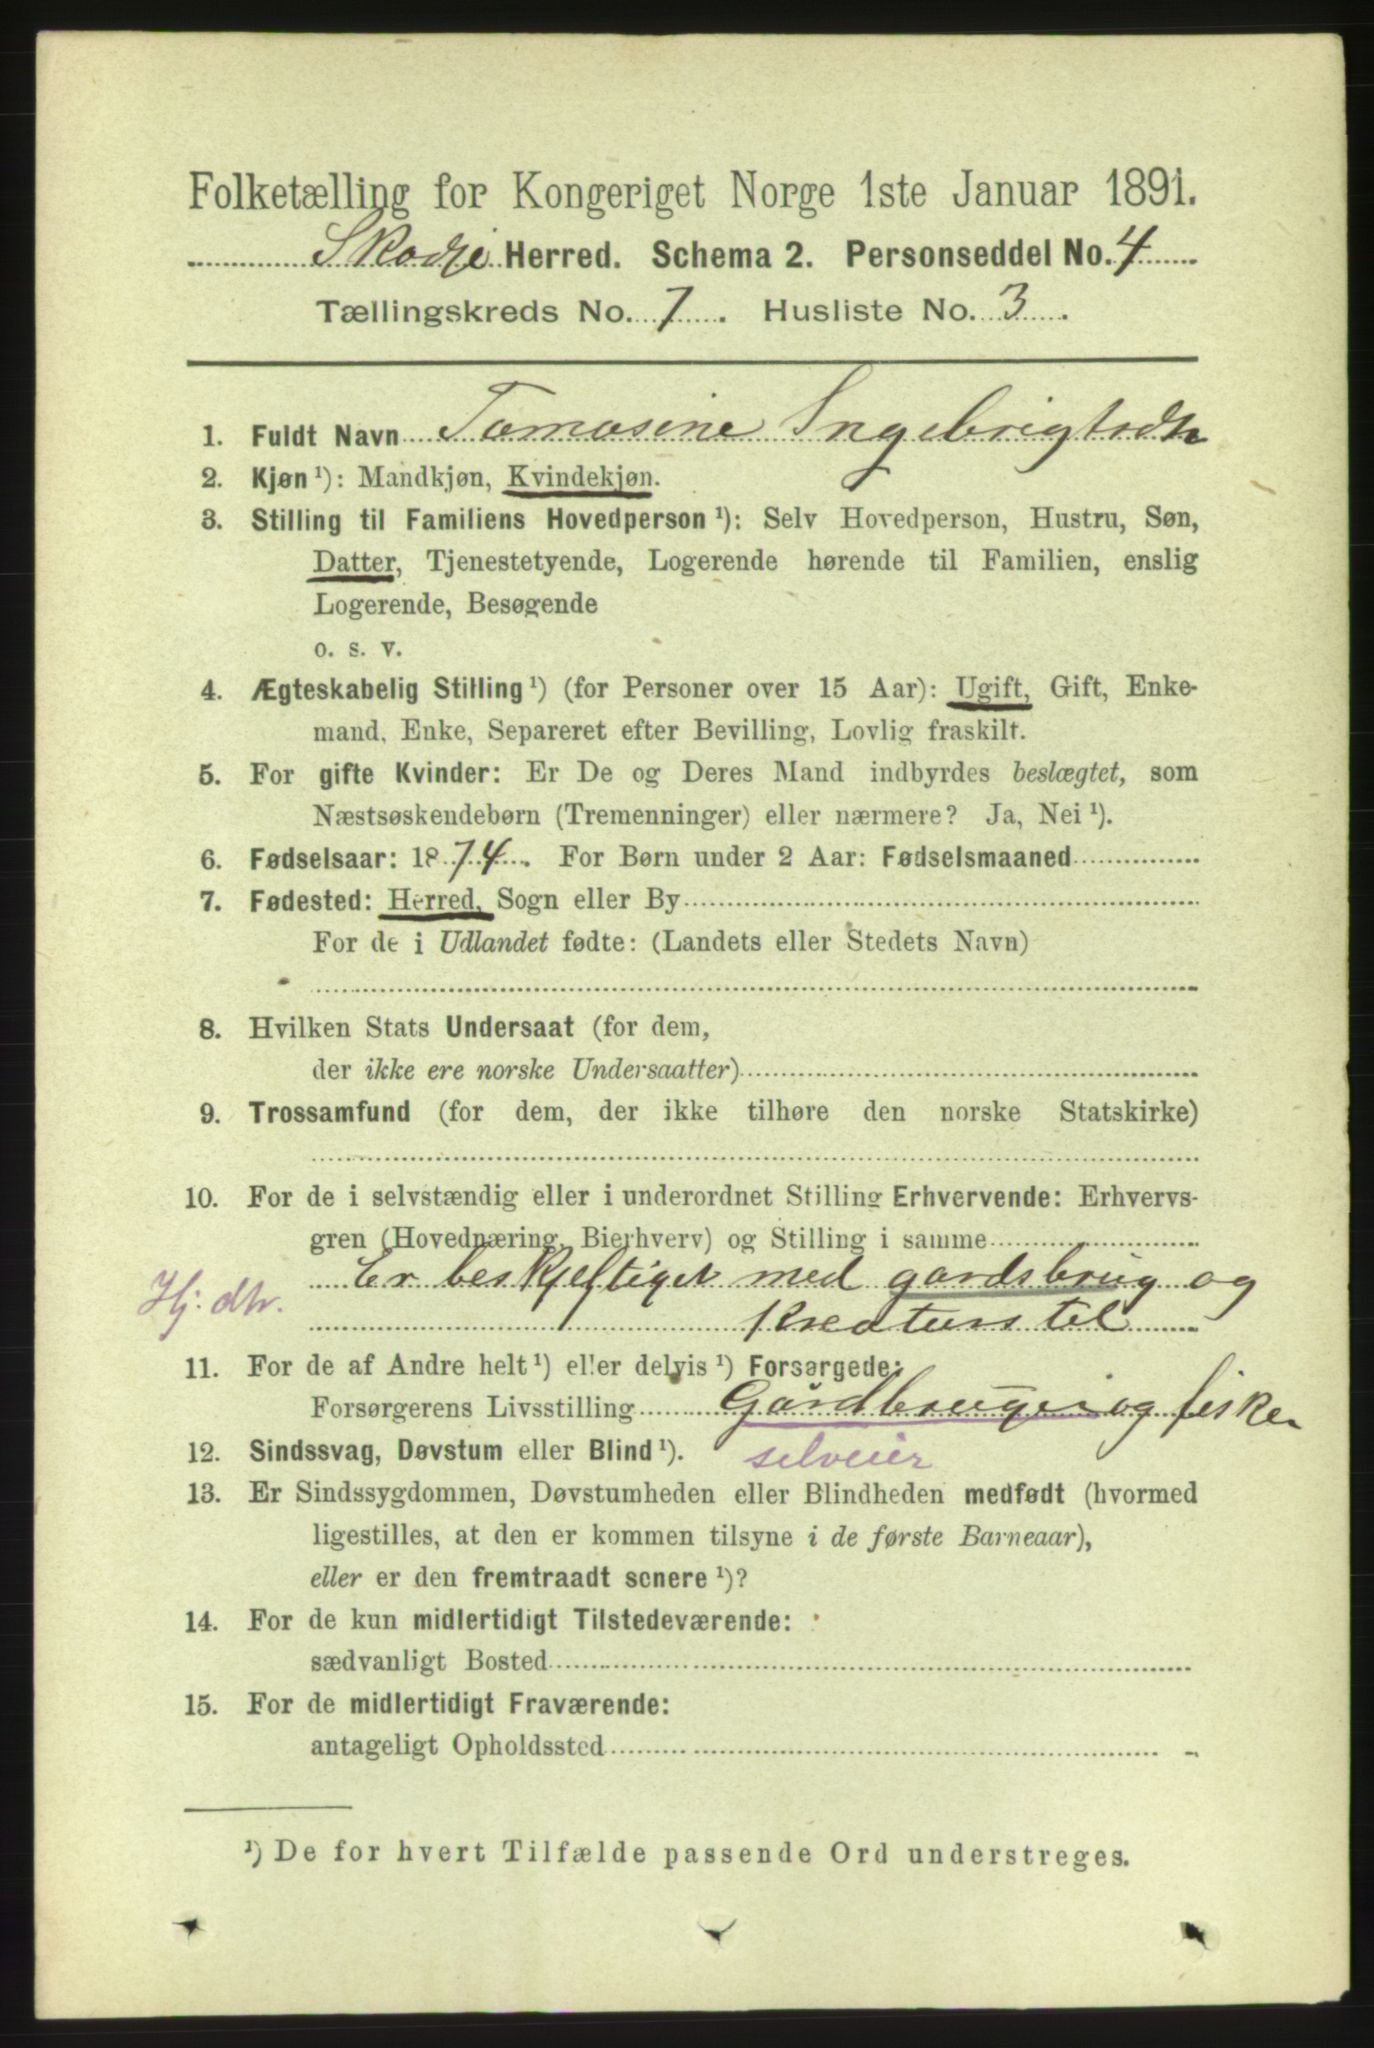 Folketælling for Kongeriget Norge 1ste Januar 1891.
Skodje Herred. Schema 2. Personseddel No. 4
Tællingskreds No. 7. Husliste No. 3.
1. Fuldt Navn Tomasine Ingebrigtsdtr
2. Kjøn ¹): Mandkjøn, Kvindekjøn.
3. Stilling til Familiens Hovedperson ¹): Selv Hovedperson, Hustru, Søn,
Datter, Tjenestetyende, Logerende hørende til Familien, enslig
Logerende, Besøgende
o. s. v.
4. Ægteskabelig Stilling ¹) (for Personer over 15 Aar): Ugift, Gift, Enke-
mand, Enke, Separeret efter Bevilling, Lovlig fraskilt.
5. For gifte Kvinder: Er De og Deres Mand indbyrdes beslægtet, som
Næstsøskendebørn (Tremenninger) eller nærmere? Ja, Nei ¹).
6. Fødselsaar: 1874. For Børn under 2 Aar: Fødselsmaaned
7. Fødested: Herred, Sogn eller By
For de i Udlandet fødte: (Landets eller Stedets Navn)
8. Hvilken Stats Undersaat (for dem,
der ikke ere norske Undersaatter)
9. Trossamfund (for dem, der ikke tilhøre den norske Statskirke)
10. For de i selvstændig eller i underordnet Stilling Erhvervende: Erhvervs-
gren (Hovednæring, Bierhverv) og Stilling i samme
Er beskjeftiget med gardsbrug og
Hj. dtr. Kreaturstel
11. For de af Andre helt ¹) eller delvis ¹) Forsørgede:
Forsørgerens Livsstilling Gardbruger og fisker
12. Sindssvag, Døvstum eller Blind ¹). selveier
13. Er Sindssygdommen, Døvstumheden eller Blindheden medfødt (hvormed
ligestilles, at den er kommen tilsyne i de første Barneaar),
eller er den fremtraadt senere ¹)?
14. For de kun midlertidigt Tilstedeværende:
sædvanligt Bosted
15. For de midlertidigt Fraværende:
antageligt Opholdssted
¹) De for hvert Tilfælde passende Ord understreges.